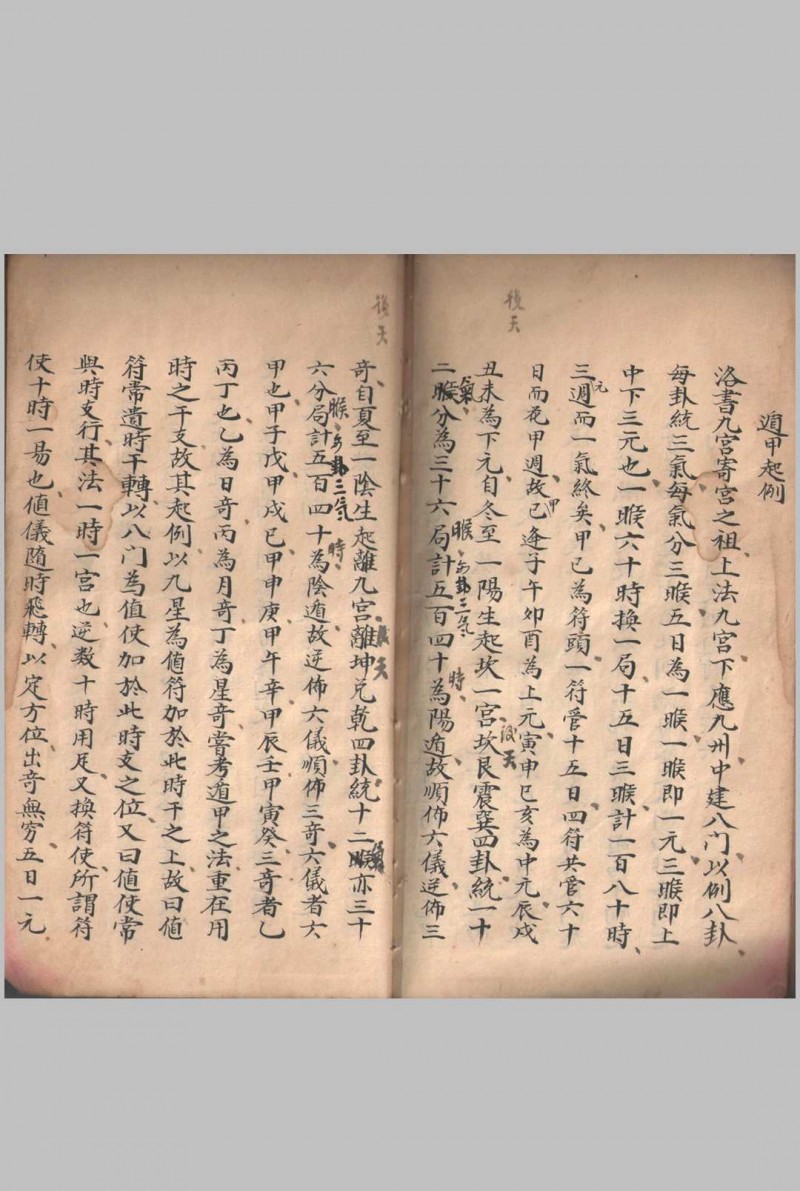 後天
遁甲起例
洛書九宮寄宮之祖上法九宮下應九州中建八門以例八卦
每卦統三氣每氣分三㬋五日為一㬋一㬋即一元三㬋即上
中下三元也一㬋六十時換一局十五日三㬋計一百八十時
元
三週而一氣終矣甲己為符頭一符管十五日四符共管六十
日而花甲週故己逢子午卯酉為上元寅申巳亥為中元辰戌
甲
丑未為下元自冬至一陽生起坎一宮坎艮震巽四卦統一十
後天
㬋
卦三氣
時
二㬋分為三十六局計五百四十為陽遁故順佈六儀逆佈三
氣
後天
奇自夏至一陰生起離九宮離坤兌乾四卦統十二㬋亦三十
後天
六分局計五百四十為陰遁故逆佈六儀順佈三奇六儀者六
㬋
卦三氣
時
甲也甲子戊甲戌己甲申庚甲午辛甲辰壬甲寅癸三奇者乙
丙丁也乙為日奇丙為月奇丁為星奇嘗考遁甲之法重在用
時之干支故其起例以九星為値符加於此時干之上故曰値
符常遣時干轉以八門為值使加於此時支之位又曰値使常
與時支行其法一時一宮也逆数十時用足又換符使所謂符
使十時一易也値儀隨時飛轉以定方位出奇無穷五日一元